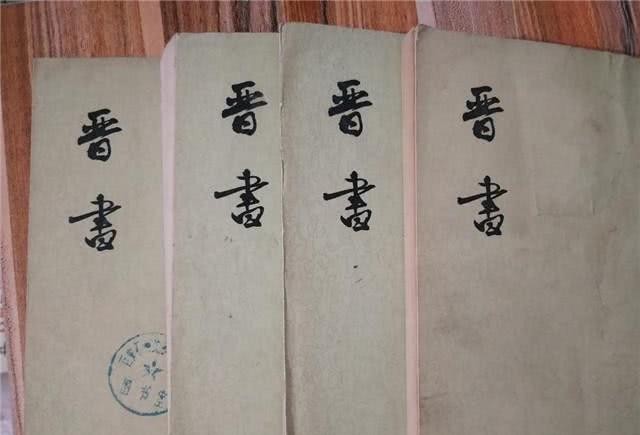 晋
書
晋
書
晋
書
晋
書